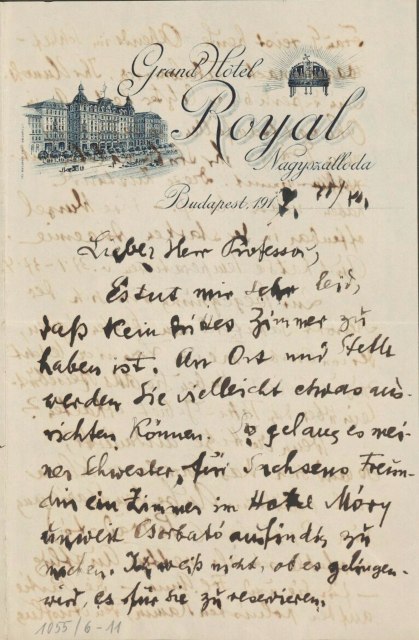 Grand Hôtel
Royal
Nagyszálloda
Budapest, 191
Lieber Herr Professor,
Es tut mir sehr leid,
daß kein drittes Zimmer zu
haben ist. An Ort und Stelle
werden Sie vielleicht etwas aus-
richten können. So gelang es mei-
ner Schwester, für Sachsens Freun-
din ein Zimmer im Hotel Móry
unweit Csorbató ausfindig zu
machen. Ich weiß nicht, ob es gelingen
wird, es für Sie zu reservieren.
1055/6-11